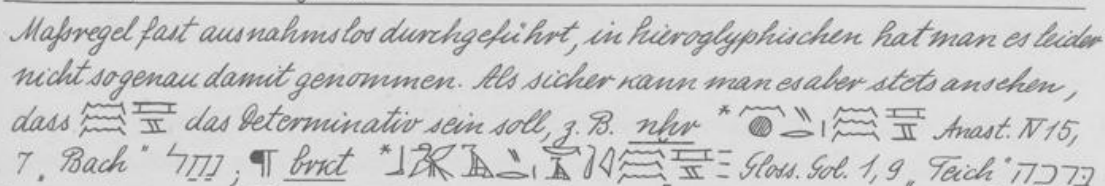 Maſsregel fast ausnahmslos durchgeführt, in hieroglyphischen hat man es leider
nicht so genau damit genommen. Als sicher kann man es aber stets ansehen,
dass 𓈗 𓈇 das Determinativ sein soll, z. B. nḥr * Anast. IV 15,
7 „Bach“ נחל; ¶ brkt * Gloss. Gol. 1,9 „Teich“ ברכה